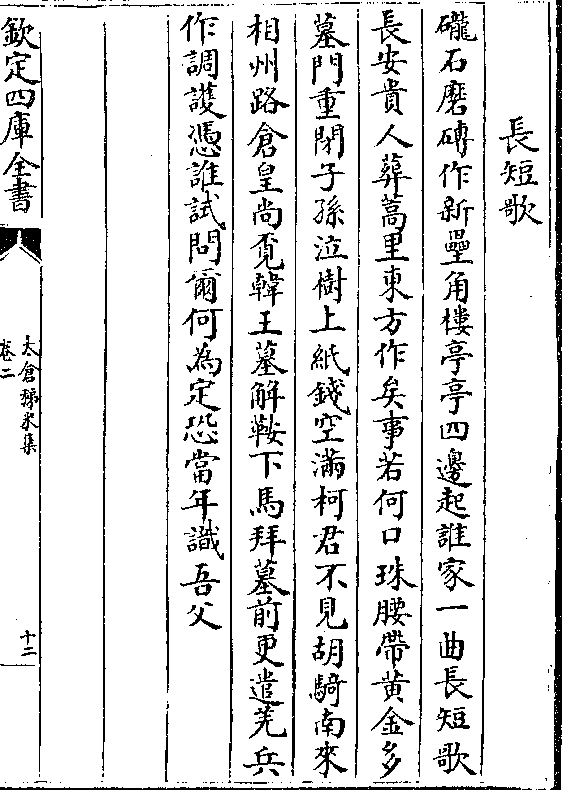 長短歌
礲石磨磚作新壘角樓亭亭四邊起誰家一曲長短歌
長安貴人葬蒿里東方作矣事若何口珠腰帶黃金多
墓門重閉子孫泣樹上紙錢空滿柯君不見胡騎南來
相州路倉皇尚覔韓王墓解鞍下馬拜墓前更遣羌兵
作調護憑誰試問爾何為定恐當年識吾父
欽定四庫全書
太倉稊米集
卷二
十二